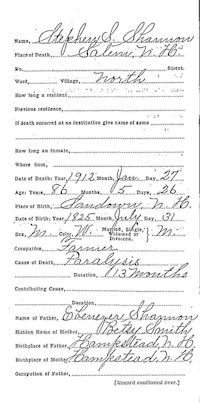 Name, Stephen S. Shannon
Place of Death, Salem, N. H.
No. Street.
Ward, Village, North
How long a resident
Previous residence,
If death occurred at an institution give name of same
How long an inmate,
Where from,
Date of Death: Year, 1912 Month, Jan Day, 27
Age: Years, 86 Months, 5 Days, 26
Place of Birth, Sandown, N. H.
Date of Birth: Year, 1825 Month, July Day, 31
Sex, M. Color, W. Married, Single, Widowed or Divorced. M.
Occupation, Farmer
Cause of Death, Paralysis
Duration, 13 months
Contributing Cause,
Duration,
Name of Father, Ebenezer Shannon
Maiden Name of Mother, Betsy Smith
Birthplace of Father, Hampstead, N. H.
Birthplace of Mother, Hampstead, N. H.
Occupation of Father,
[Record continued over.]